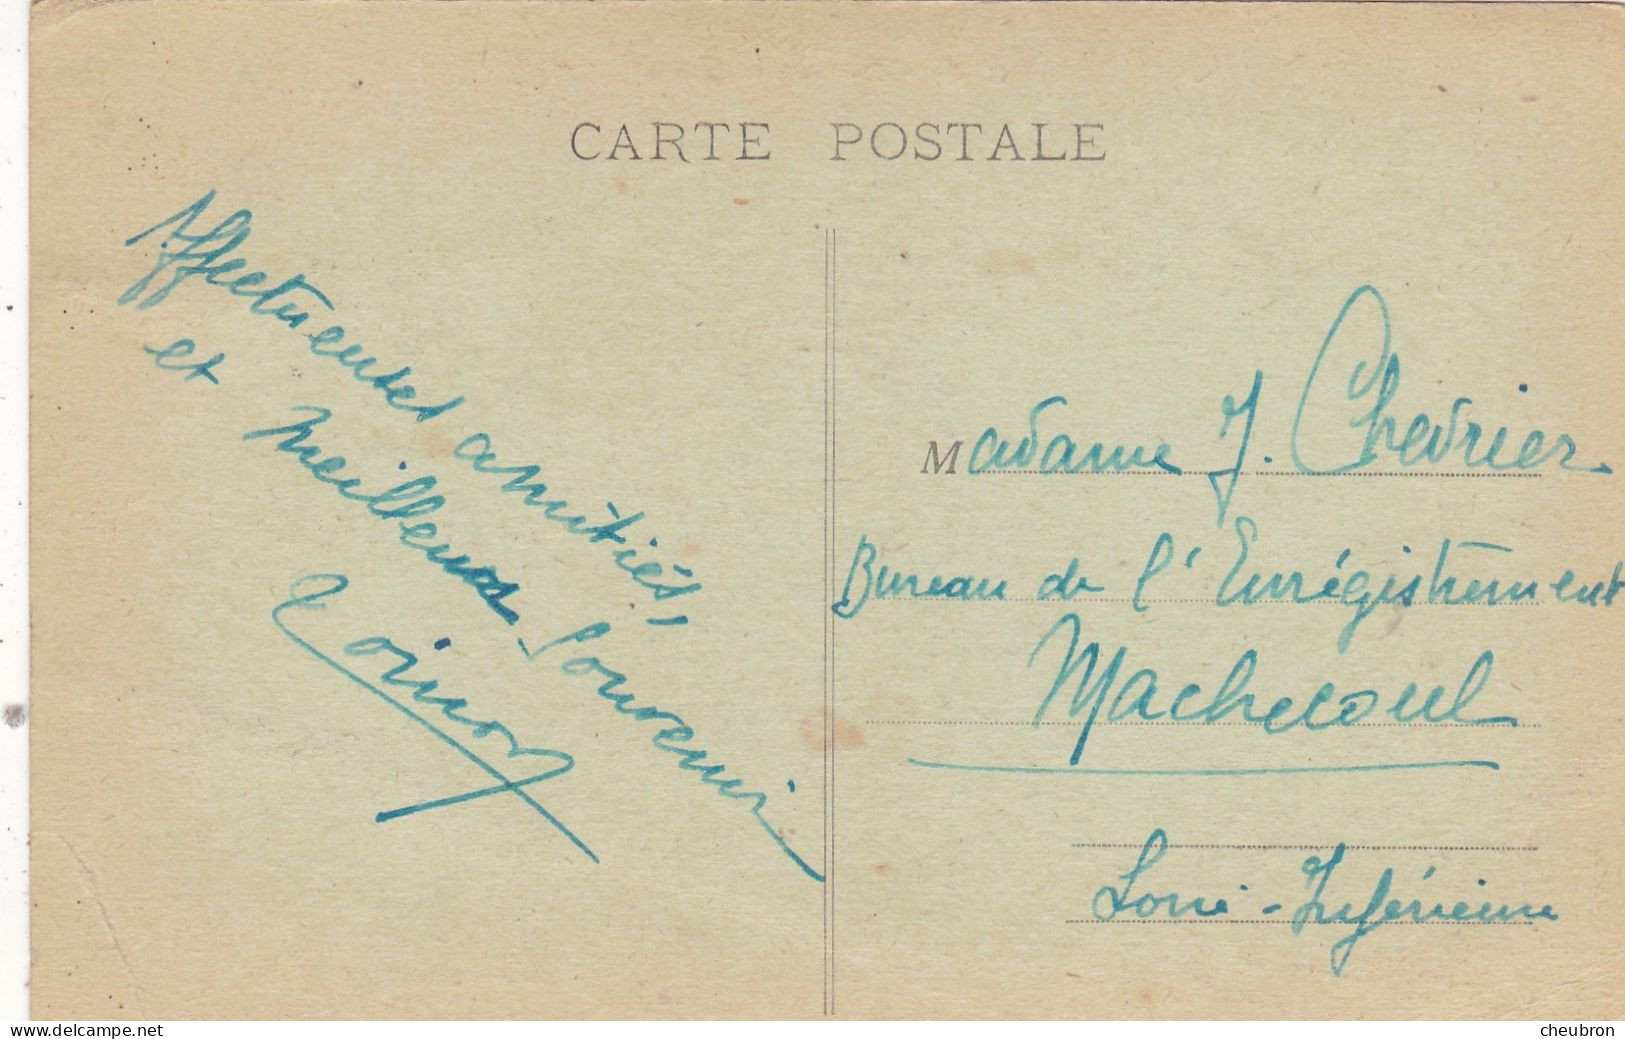 CARTE POSTALE
Affectueuses amitiés,
et meilleurs souvenir
Toinon
Madame J. Chevrier
Bureau de l'Enrégistrement
Machecoul
Loire-Inférieure
www.delcampe.net
cheubron